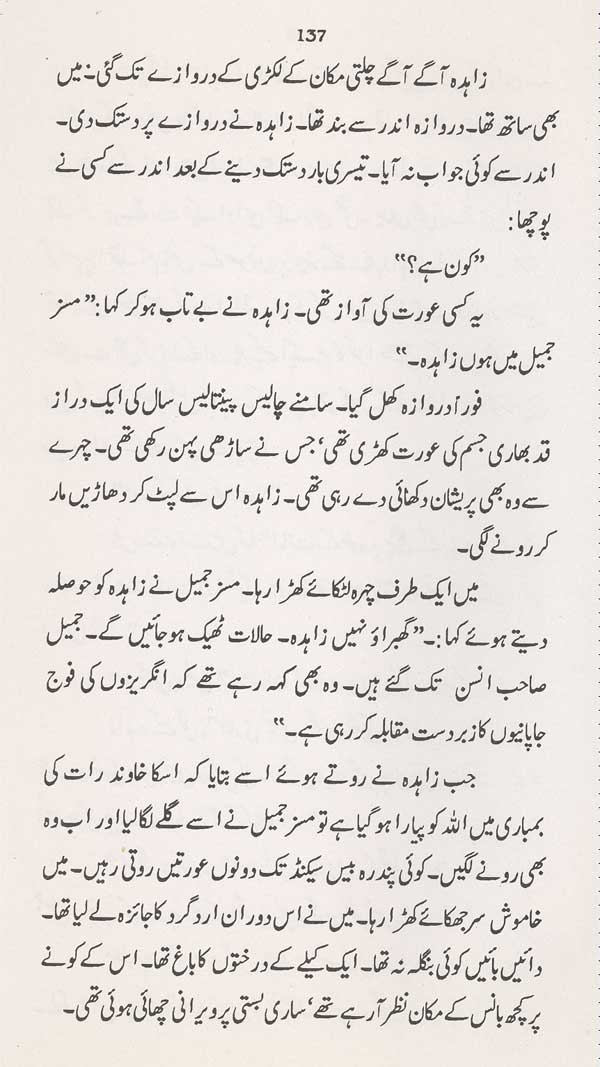 137
زاہدہ آگے آگے چلتی مکان کے لکڑی کے دروازے تک گئی۔ میں
بھی ساتھ تھا۔ دروازہ اندر سے بند تھا۔ زاہدہ نے دروازے پر دستک دی۔
اندر سے کوئی جواب نہ آیا۔ تیسری بار دستک دینے کے بعد اندر سے کسی نے
پوچھا:
”کون ہے؟“
یہ کسی عورت کی آواز تھی۔ زاہدہ نے بے تاب ہو کر کہا: ”مسز
جمیل میں ہوں زاہدہ۔“
فوراً دروازہ کھل گیا۔ سامنے چالیس پینتالیس سال کی ایک دراز
قد بھاری جسم کی عورت کھڑی تھی‘ جس نے ساڑھی پہن رکھی تھی۔ چہرے
سے وہ بھی پریشان دکھائی دے رہی تھی۔ زاہدہ اس سے لپٹ کر دھاڑیں مار
کر رونے لگی۔
میں ایک طرف چہرہ لٹکائے کھڑا رہا۔ مسز جمیل نے زاہدہ کو حوصلہ
دیتے ہوئے کہا:۔ ”گھبراؤ نہیں زاہدہ۔ حالات ٹھیک ہو جائیں گے۔ جمیل
صاحب انسن تک گئے ہیں۔ وہ بھی کہہ رہے تھے کہ انگریزوں کی فوج
جاپانیوں کا زبردست مقابلہ کر رہی ہے۔“
جب زاہدہ نے روتے ہوئے اسے بتایا کہ اسکا خاوند رات کی
بمباری میں اللہ کو پیارا ہو گیا ہے تو مسز جمیل نے اسے گلے لگا لیا اور اب وہ
بھی رونے لگیں۔ کوئی پندرہ بیس سیکنڈ تک دونوں عورتیں روتی رہیں۔ میں
خاموش سر جھکائے کھڑا رہا۔ میں نے اس دوران ارد گرد کا جائزہ لے لیا تھا۔
دائیں بائیں کوئی بنگلہ نہ تھا۔ ایک کیلے کے درختوں کا باغ تھا۔ اس کے کونے
پر کچھ بانس کے مکان نظر آ رہے تھے‘ ساری بستی پر ویرانی چھائی ہوئی تھی۔